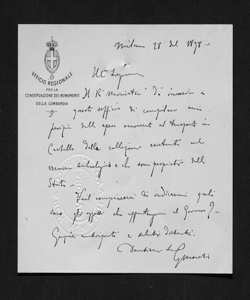 UFFICIO REGIONALE
PER LA
CONSERVAZIONE DEI MONUMENTI
DELLA LOMBARDIA
Milano 28 del 1898
Il R° Ministero dà incarico a
questo ufficio di compilare una
perizia delle spese occorrenti al trasporto in
Castello della collezione esistente nel
museo archeologico e che son proprietà dello
Stato.
Vuol compiacersi di indicarmi quali
sono gli oggetti che appartengono al Governo?
Grazie anticipate e saluti distinti.